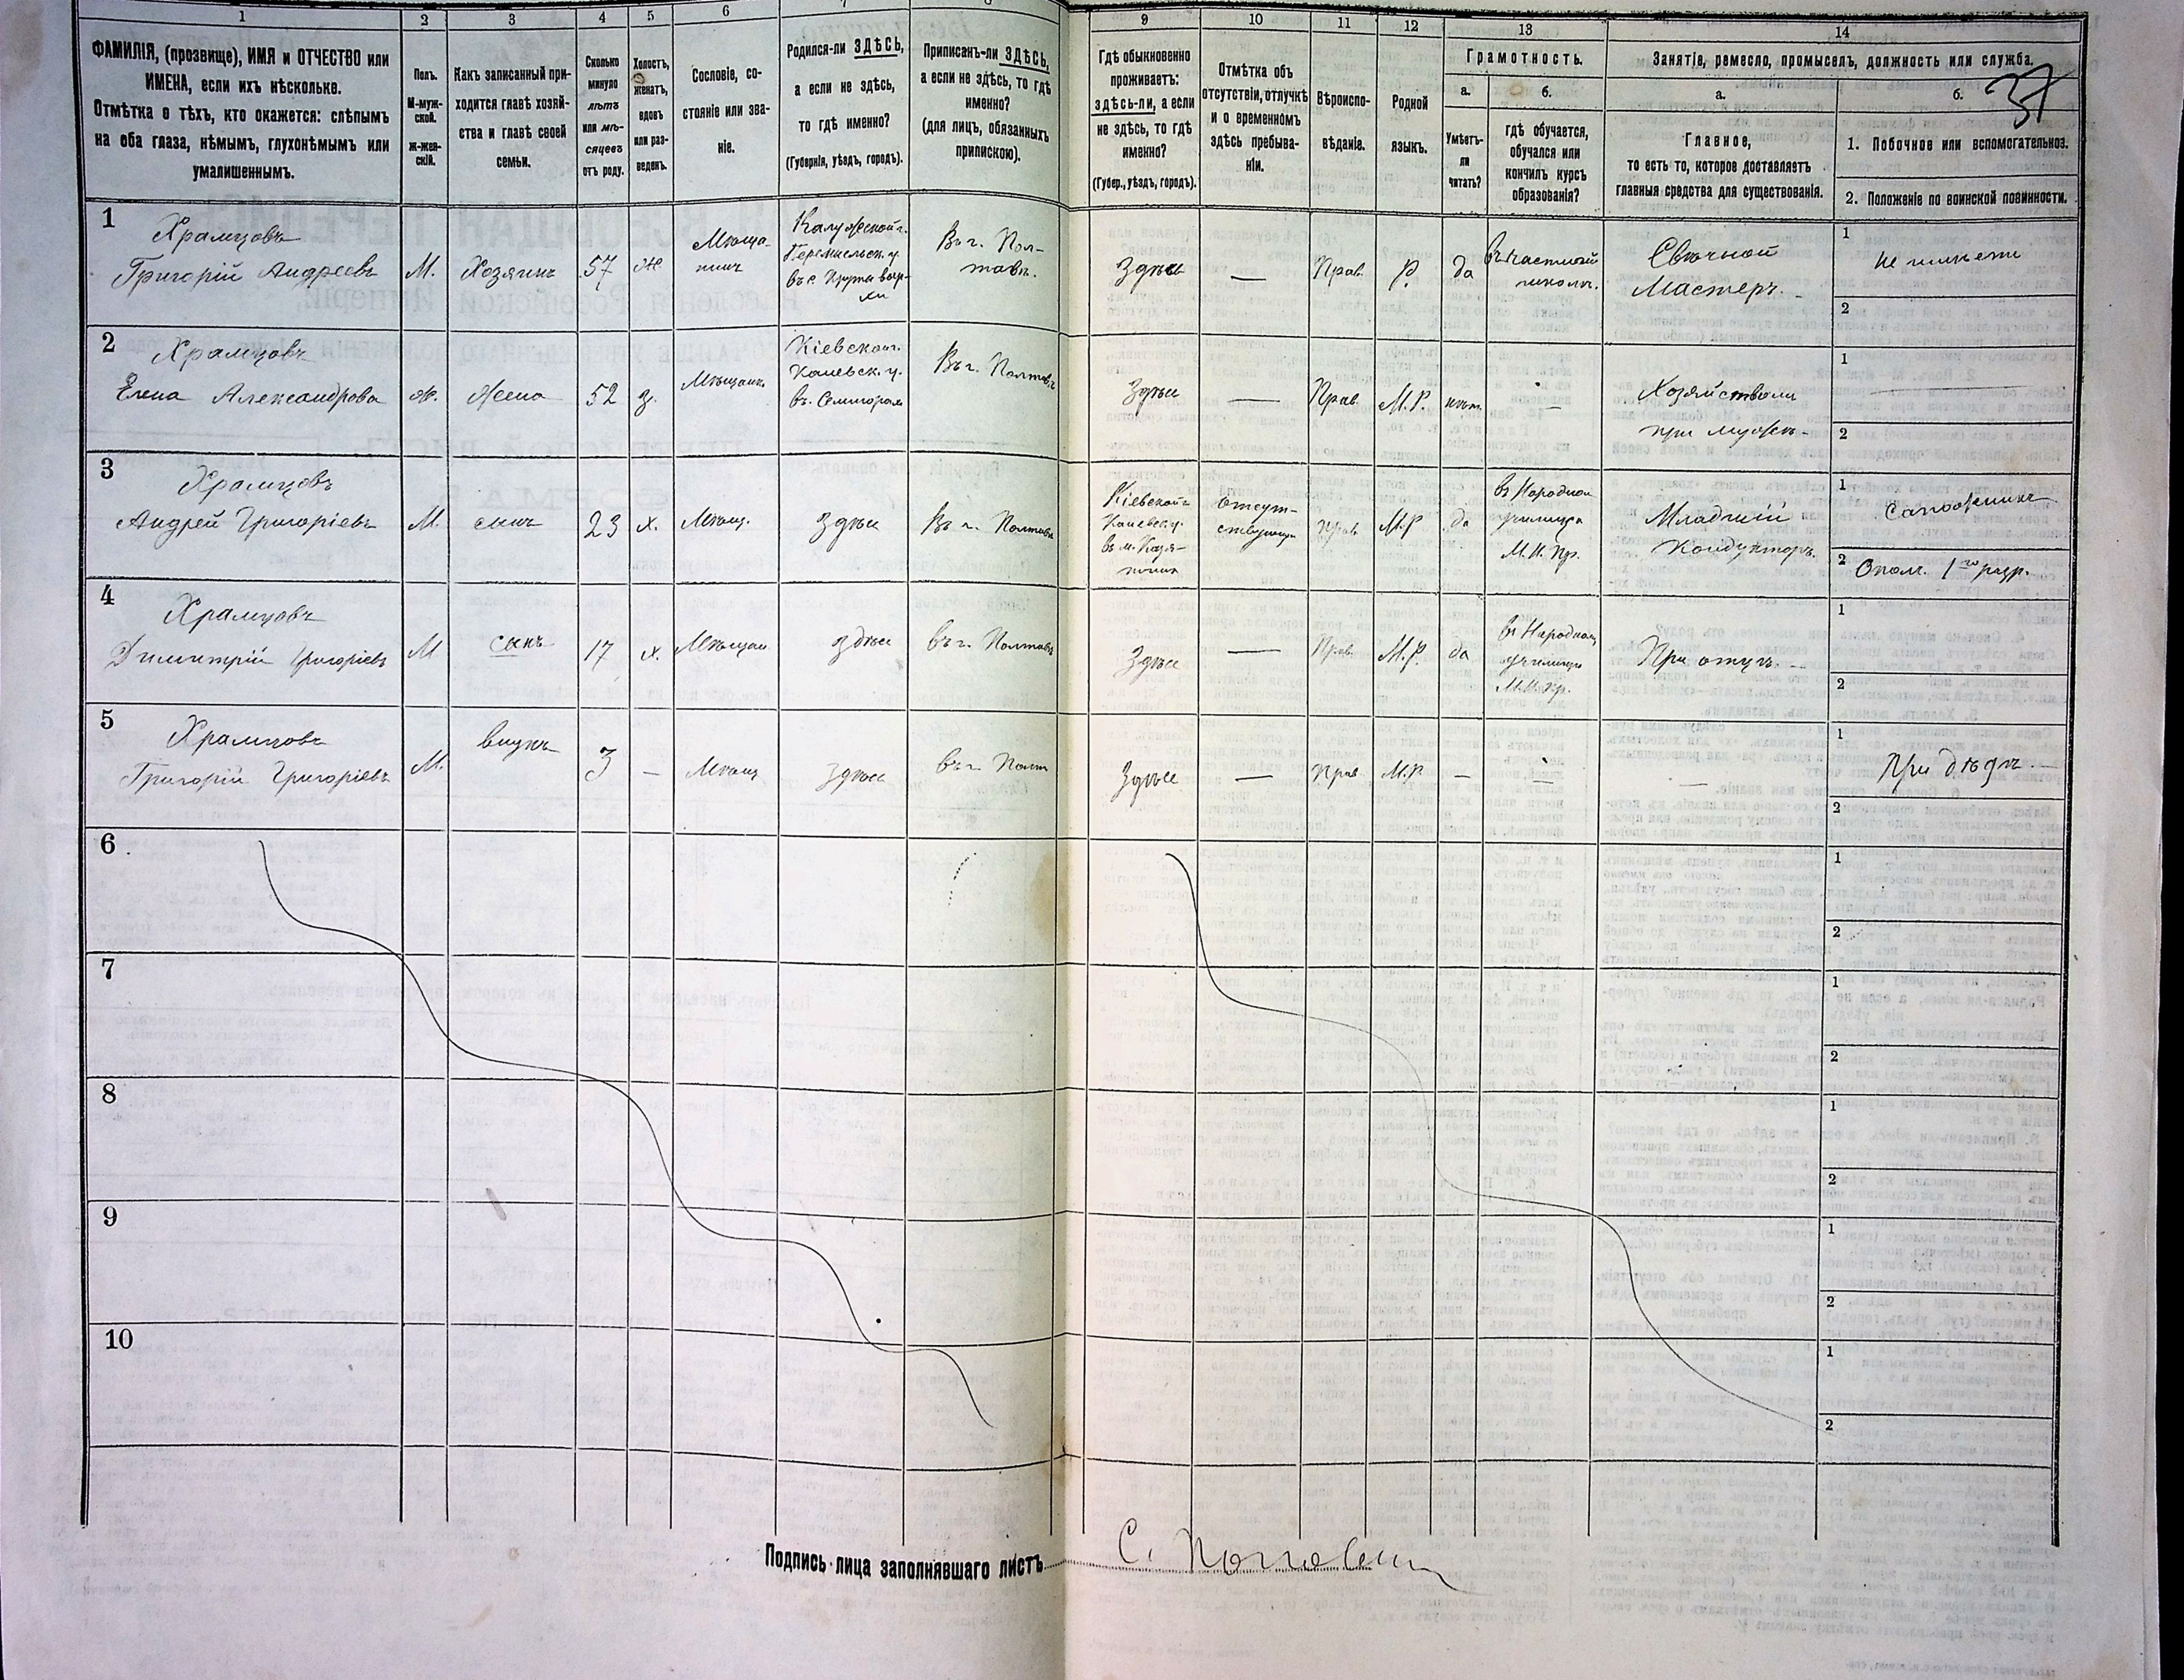 1 2 3 4 5 6 7 8 9 10 11 12 13 14
ФАМИЛІЯ, (прозвище), ИМЯ и ОТЧЕСТВО или
ИМЕНА, если ихъ нѣсколько.
Отмѣтка о тѣхъ, кто окажется: слѣпымъ
на оба глаза, нѣмымъ, глухонѣмымъ или
умалишеннымъ.
Полъ.
М-муж-
ской.
ж-жен-
скій.
Какъ записанный при-
ходится главѣ хозяй-
ства и главѣ своей
семьи.
Сколько
минуло
лѣтъ
или мѣ-
сяцевъ
отъ роду.
Холостъ,
женатъ,
вдовъ
или раз-
веденъ.
Сословіе, со-
стояніе или зва-
ніе.
Родился-ли ЗДѢСЬ,
а если не здѣсь,
то гдѣ именно?
(Губернія, уѣздъ, городъ).
Приписанъ-ли ЗДѢСЬ,
а если не здѣсь, то гдѣ
именно?
(для лицъ, обязанныхъ
припискою).
Гдѣ обыкновенно
проживаетъ:
здѣсь-ли, а если
не здѣсь, то гдѣ
именно?
(Губер., уѣздъ, городъ).
Отмѣтка объ
отсутствіи, отлучкѣ
и о временномъ
здѣсь пребыва-
ніи.
Вѣроиспо-
вѣданіе.
Родной
языкъ.
Грамотность.
а.
Умѣетъ-
ли
читать?
б.
гдѣ обучается,
обучался или
кончилъ курсъ
образованія?
Занятіе, ремесло, промыселъ, должность или служба.
37
а.
Главное,
то есть то, которое доставляетъ
главныя средства для существованія.
б.
1. Побочное или вспомогательное.
2. Положеніе по воинской повинности.
1
Храмцовъ
Григорій Андреевъ
М.
Хозяинъ
57
ж
Мѣща-
нинъ
Калужской г.
Перемысльск. у.
Въ г. Пол-
тавѣ.
Здѣсь
—
Прав.
Р.
да
въ частной
школѣ.
Свѣчной
Мастеръ.
1
не имѣетъ
2
2
Храмцовъ
Елена Александрова
ж.
Жена
52
з.
Мѣщанк.
Кіевской г.
Каневск. у.
Въ г. Полтавѣ
Здѣсь
—
Прав.
М.Р.
нѣтъ
—
Хозяйством
при мужѣ-
1
2
3
Храмцовъ
Андрей Григоріевъ
М.
сынъ
23
х.
Мѣщ.
здѣсь
Въ г. Полтавѣ
Кіевской г.
Каневск. у.
отсут-
ствующ
Прав
М.Р
да
въ Народном
училищѣ
М.Н.Пр.
Младшій
Кондукторъ.
1
Сапожникъ
2
Ополч. 1го разр.
4
Храмцовъ
Димитрій Григоріевъ
М
сынъ
17
х.
Мѣщан
здѣсь
въ г. Полтавѣ
Здѣсь
—
Прав.
М.Р.
да
въ Народном
училищѣ
М.Н.Пр.
При отцѣ. —
1
2
5
Храмцовъ
Григорій Григоріевъ
М.
внукъ
3
—
Мѣщ
Здѣсь
въ г. Полт
Здѣсь
—
Прав
М.Р.
—
—
—
1
При дѣдѣ. —
2
6
1
2
7
1
2
8
1
2
9
1
2
10
1
2
Подпись лица заполнявшаго листъ
С.